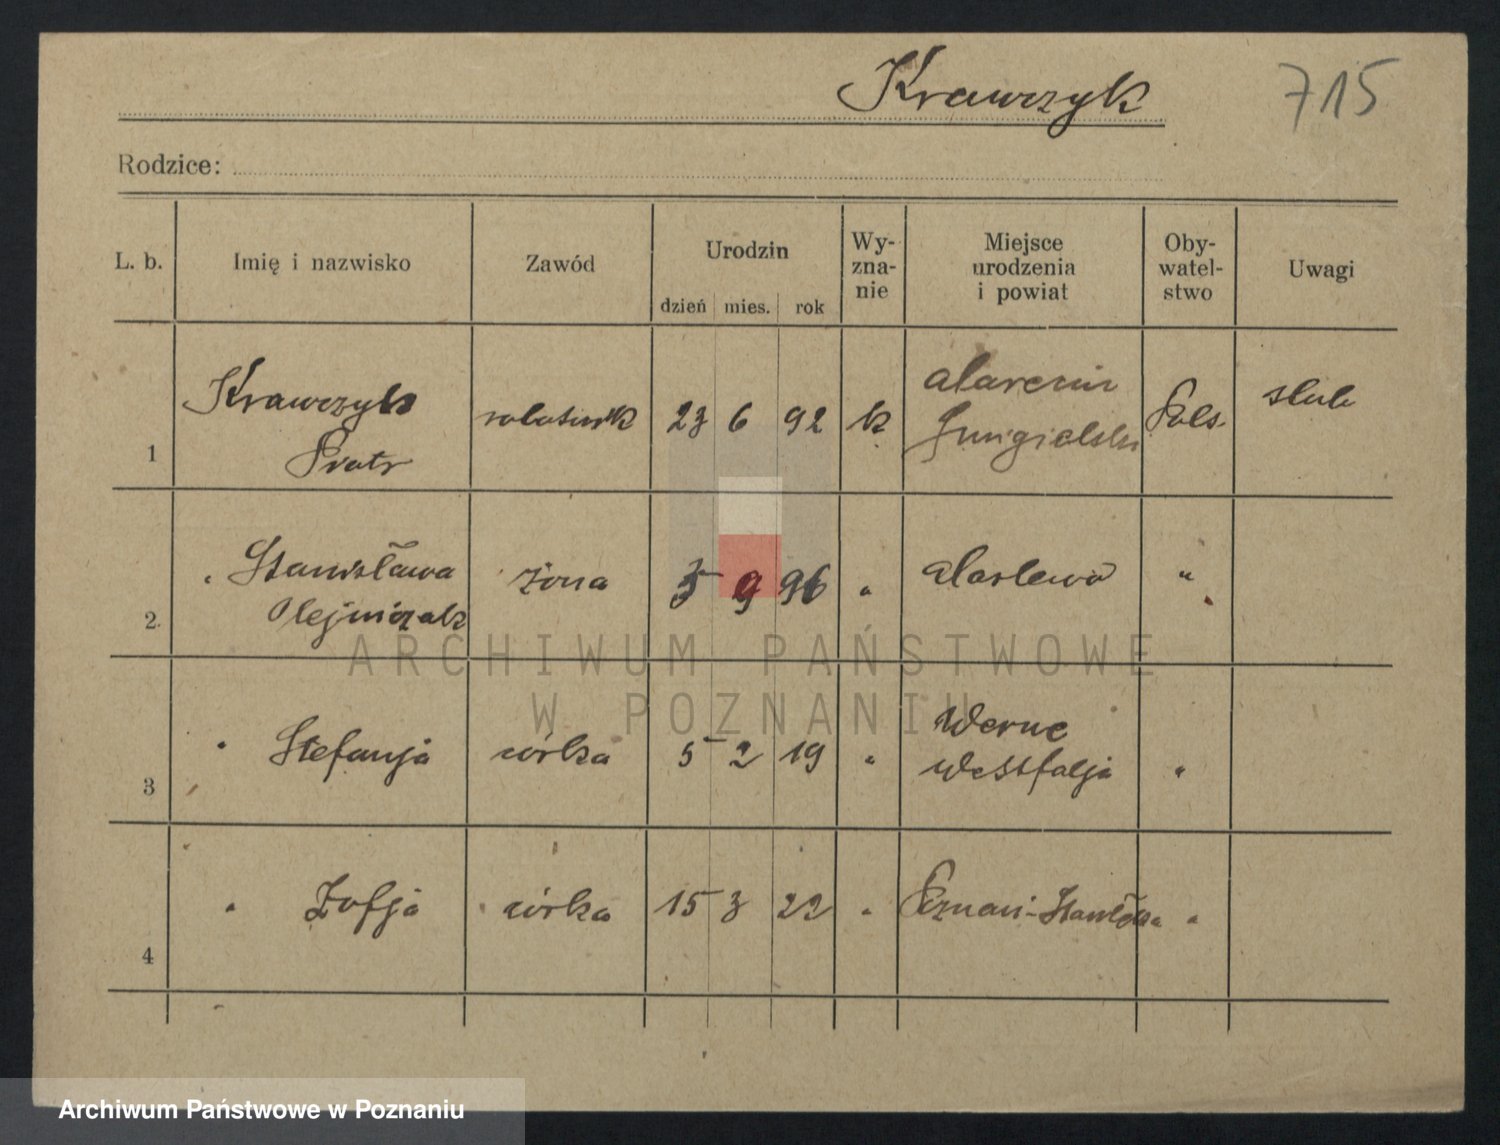 Krawczyk
715
Rodzice:
L. b.
Imię i nazwisko
Zawód
Urodzin
dzień mies. rok
Wy-
zna-
nie
Miejsce
urodzenia
i powiat
Oby-
watel-
stwo
Uwagi
1
Krawczyk
Piotr
robotnik
23 6 92
k
Marcin
Pols.
ślub
2
" Stanisława
Olejniczak
żona
5 9 96
"
"
3
" Stefanja
córka
5 2 19
"
Werne
Westfalja
"
4
" Zofja
córka
15 3 22
"
Poznań-
"
ARCHIWUM PAŃSTWOWE
W POZNANIU
Archiwum Państwowe w Poznaniu